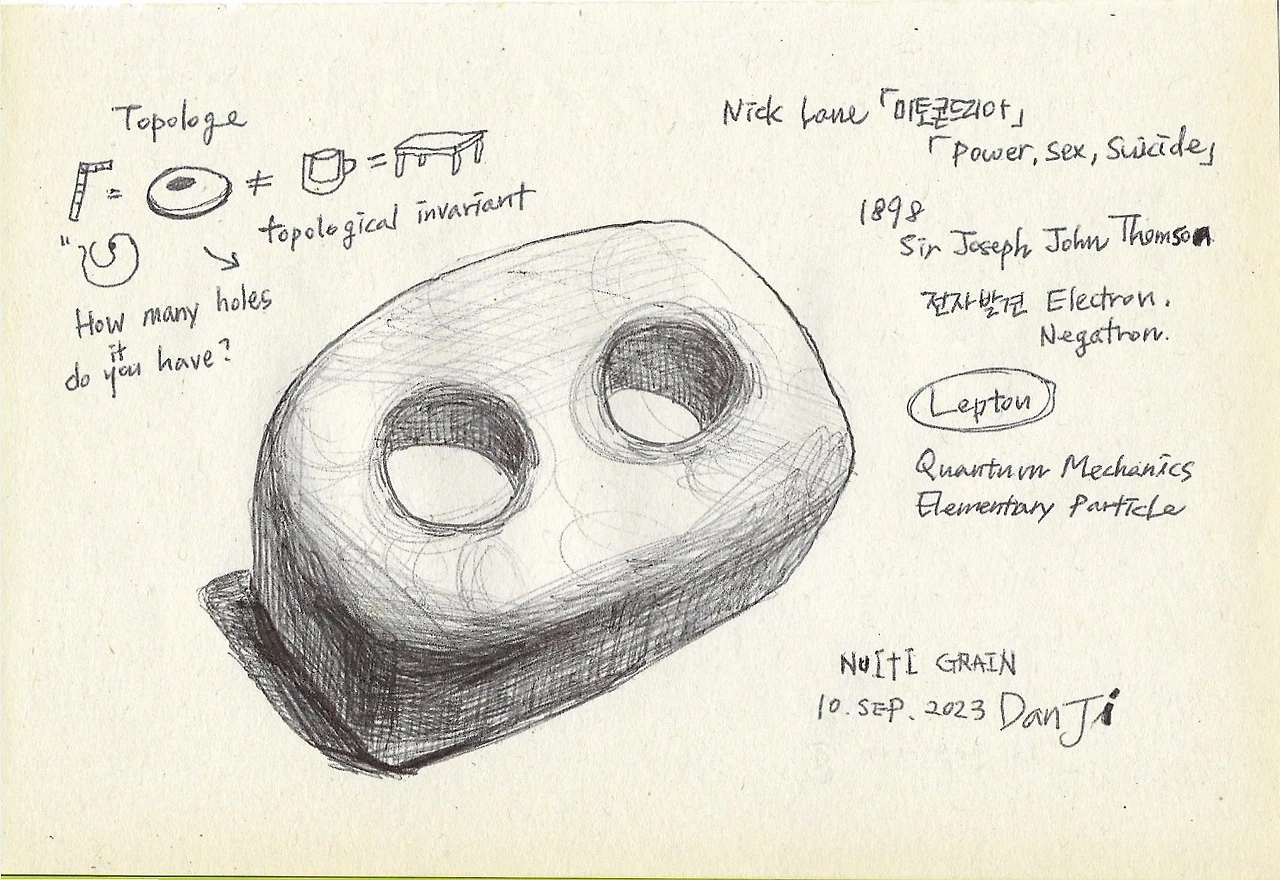 Topologe
= ≠ =
topological invariant
How many holes
it
do you have?
Nick Lane 「미토콘드리아」
「Power, Sex, Suicide」
1898
Sir Joseph John Thomson
전자발견 Electron.
Negatron.
Lepton
Quantum Mechanics
Elementary Particle
GRAIN
10. SEP. 2023 DanJi